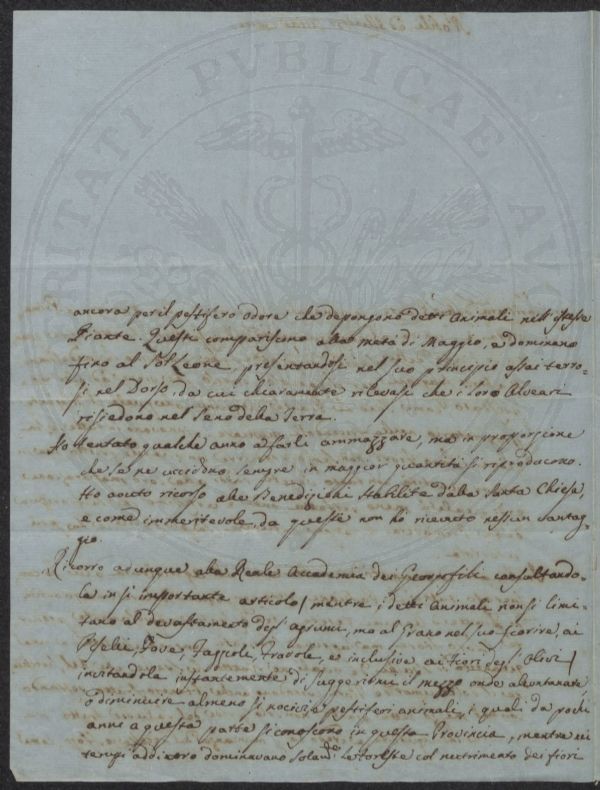 PUBLICAE
ancora per il pestifero odore che depongono detti Animali nell'istesse
Piante. Questi compariscono alla metà di Maggio, e dominano
fino al Sol Leone, presentandosi nel suo principio assai terro-
si nel Dorso, da cui chiaramente rilevasi che i loro Alveari
risiedono nel seno della Terra.
Ho tentato qualche anno a farli ammazzare, ma in proporzione
che se ne uccidono sempre in maggior quantità si riproducono.
Ho avuto ricorso alle Benedizioni stabilite dalla Santa Chiesa,
e come immeritevole, da queste non ho ricevuto nessun vantag-
gio.
Ricorro adunque alla Reale Accademia dei Georgofili consultando-
la in sì importante articolo / mentre i detti Animali non si limi-
tano al devastamento degl'agrumi, ma al Grano nel suo fiorire, ai
Piselli, Fave, Fagioli, Fravole, e inclusive ai Fiori degl'Olivi /
invitandola instantemente di suggerirmi il mezzo onde allontanare,
o diminuire almeno sì nocivi e pestiferi animali, i quali da pochi
anni a questa parte si conoscono in questa Provincia, mentre nei
tempi addietro dominavano solam.te le foreste col nutrimento dei fiori